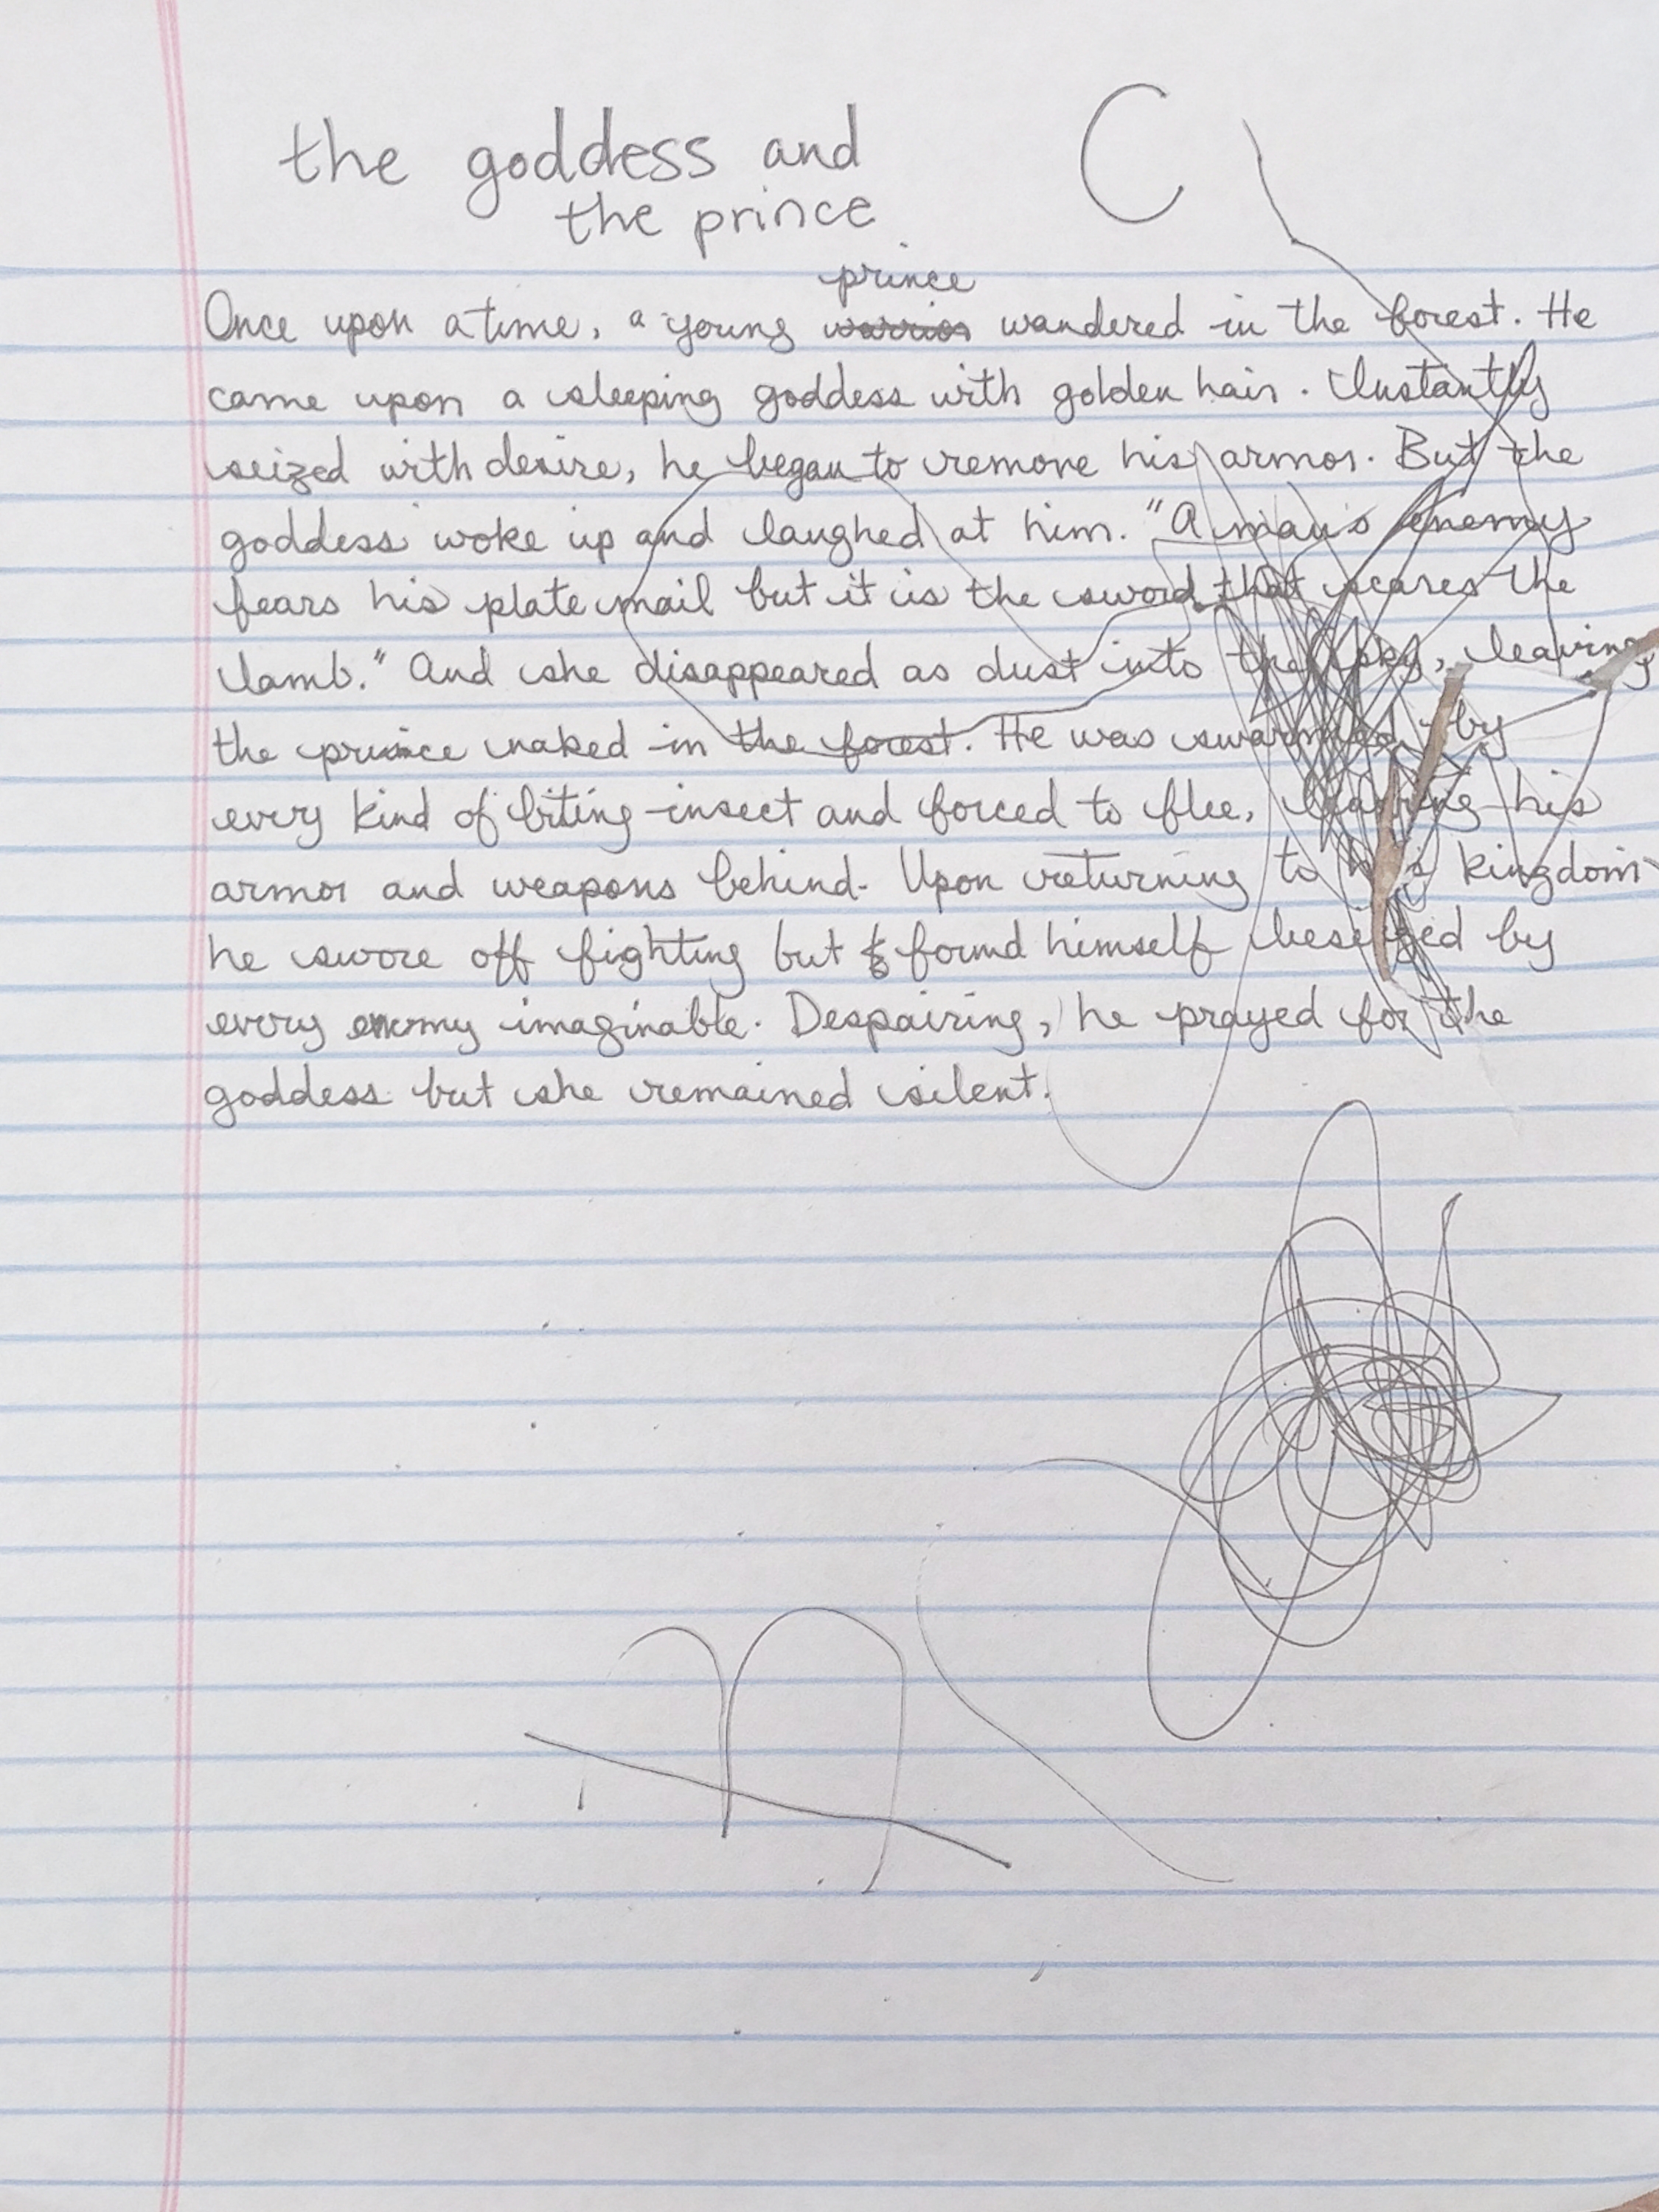 the goddess and
the prince
C
prince
Once upon a time, a young warrior wandered in the forest. He
came upon a sleeping goddess with golden hair. Instantly
seized with desire, he began to remove his armor. But the
goddess woke up and laughed at him. "A man's enemy
fears his plate mail but it is the sword that scares the
lamb." And she disappeared as dust into the sky, leaving
the prince naked in the forest. He was swarmed by
every kind of biting insect and forced to flee, leaving his
armor and weapons behind. Upon returning to his kingdom
he swore off fighting but found himself beseiged by
every enemy imaginable. Despairing, he prayed for the
goddess but she remained silent.